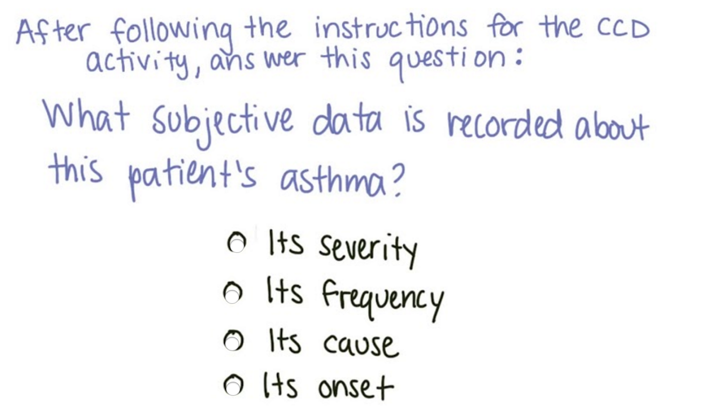 After following the instructions for the CCD
activity, answer this question:
What subjective data is recorded about
this patient's asthma?
Its severity
Its frequency
Its cause
Its onset